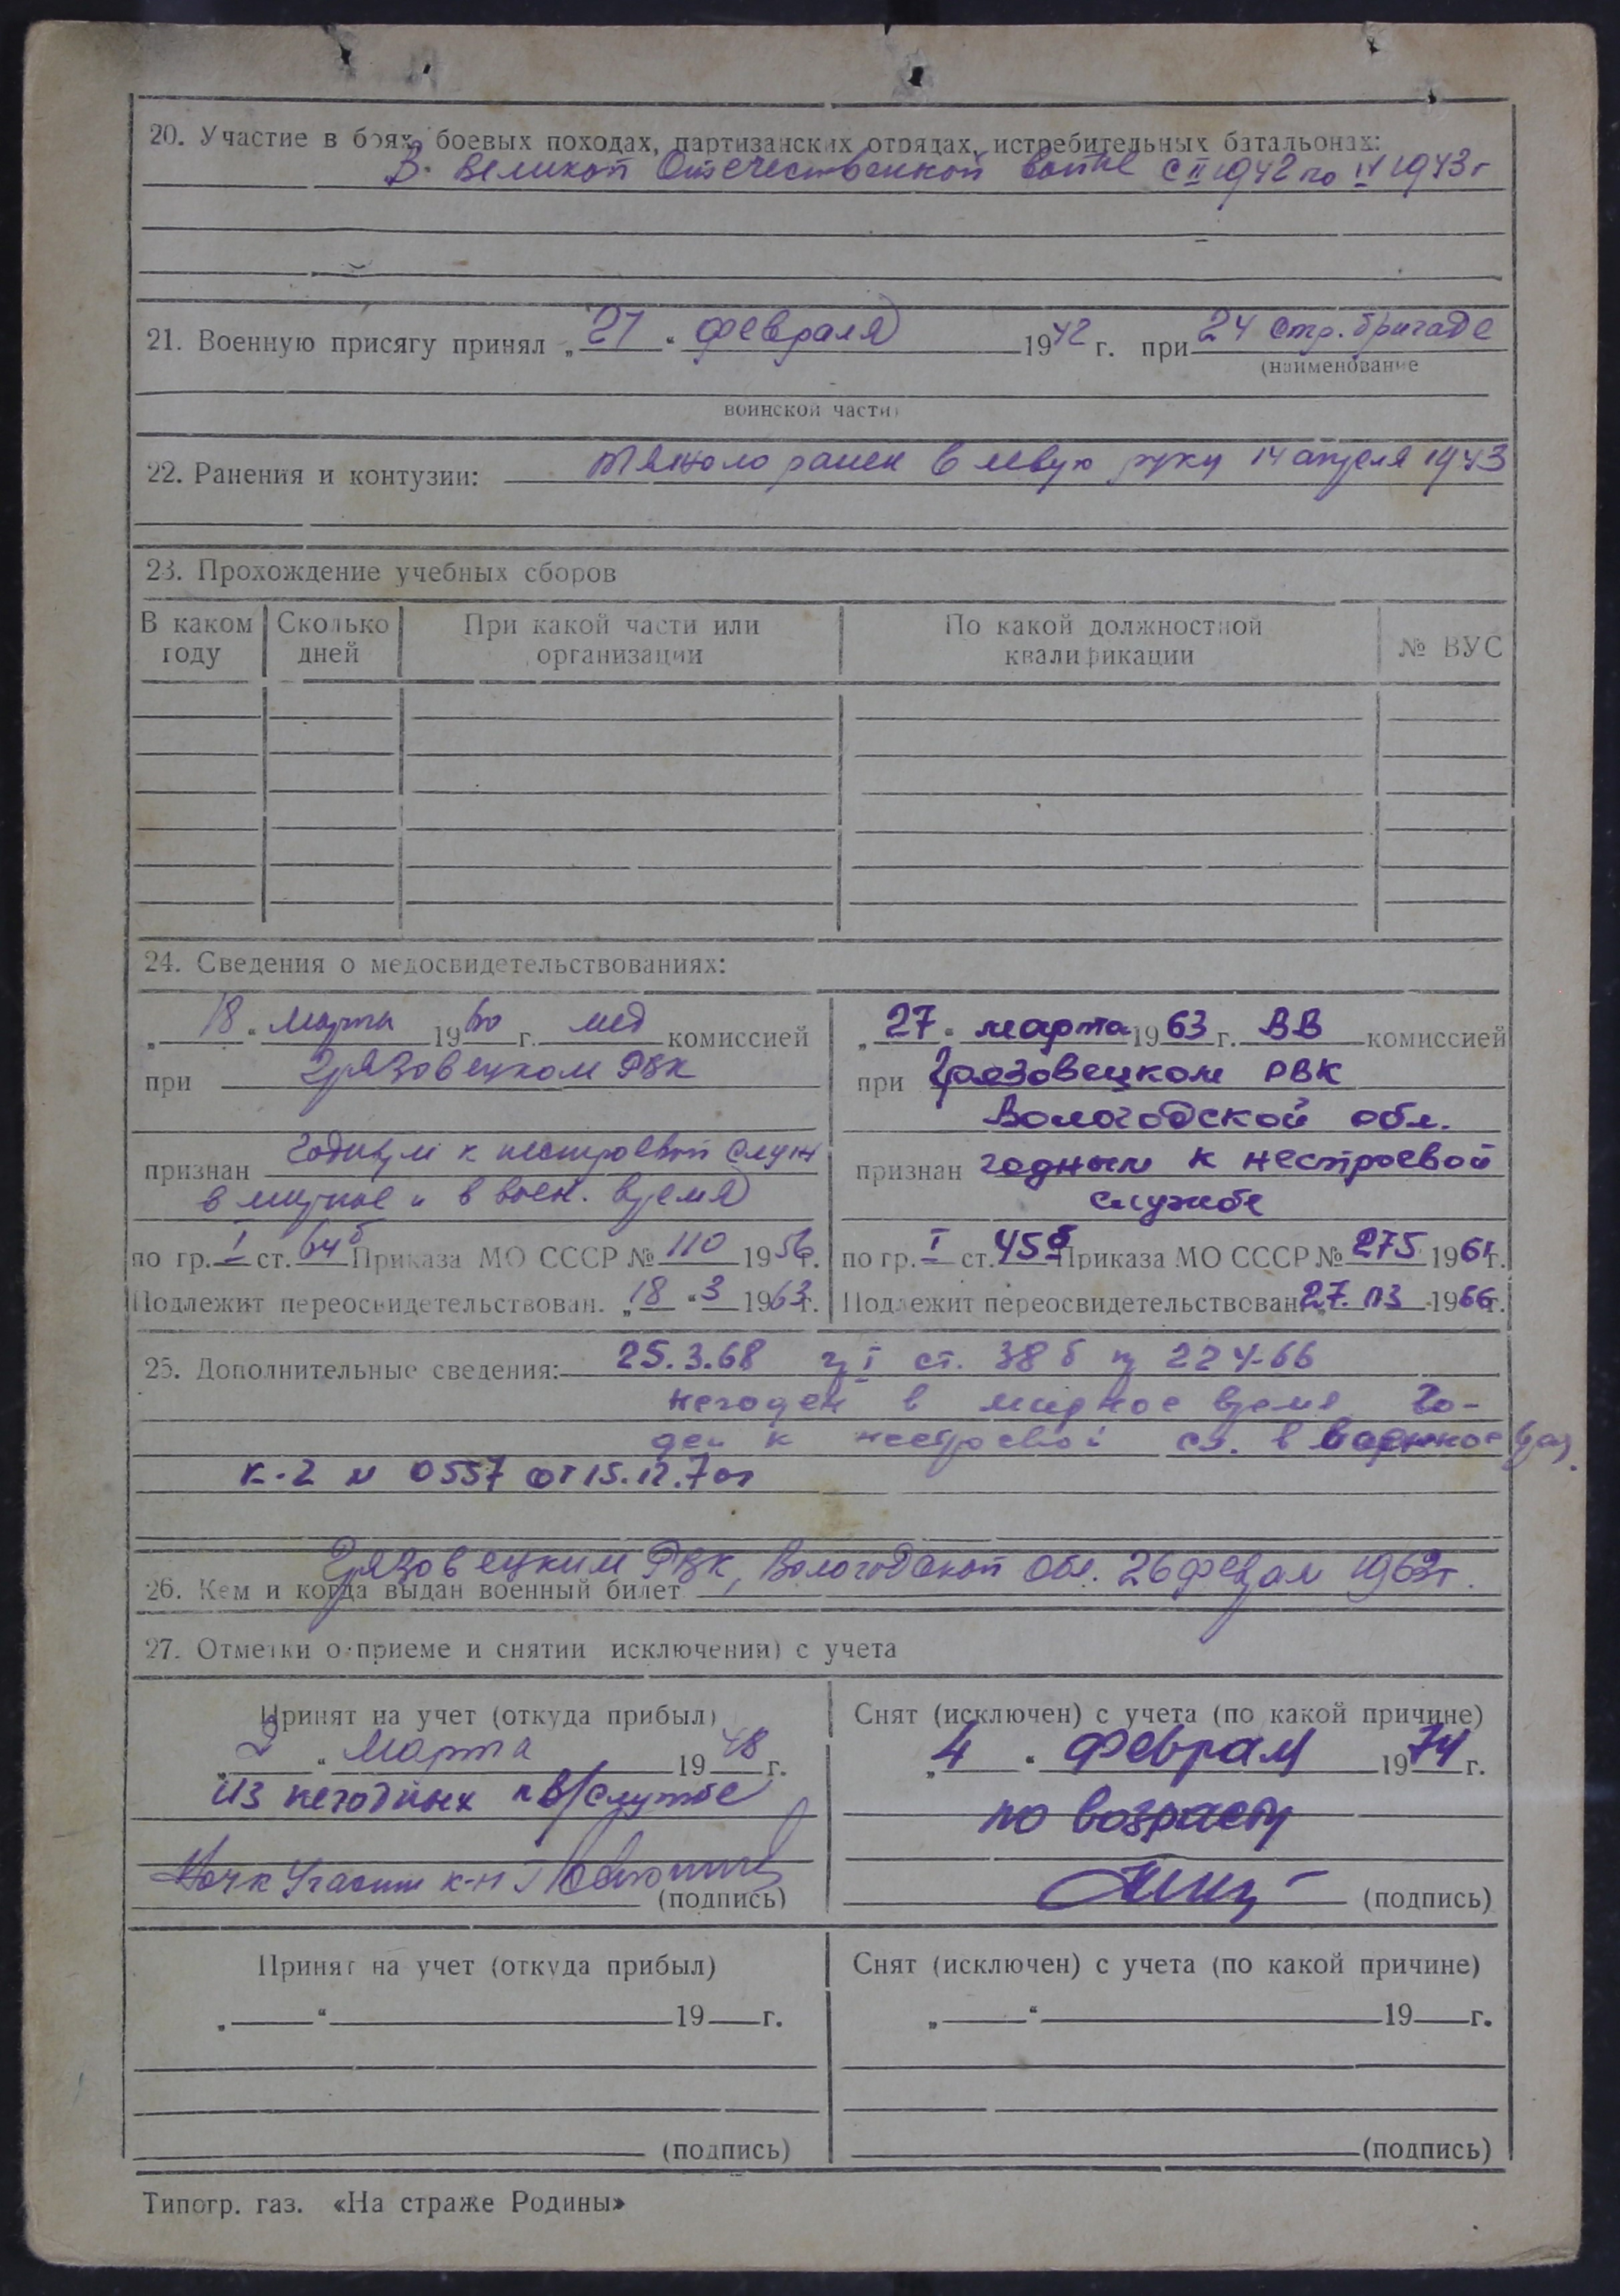 20. Участие в боях, боевых походах, партизанских отрядах, истребительных батальонах:
В Великой Отечественной войне с II 1942 по IV 1943 г
21. Военную присягу принял „21“ февраля 1942 г. при 24 стр. бригаде
(наименование
воинской части)
22. Ранения и контузии: тяжело ранен в левую руку 14 апреля 1943
23. Прохождение учебных сборов
В каком году
Сколько дней
При какой части или организации
По какой должностной квалификации
№ ВУС
24. Сведения о медосвидетельствованиях:
„18“ марта 1960 г. мед комиссией
при Грязовецком РВК
признан годным к нестроевой служ
в мирное и в воен. время
по гр. I ст. 64б Приказа МО СССР № 110 1956г.
Подлежит переосвидетельствован. „18“ 3 1963г.
„27“ марта 1963 г. ВВ комиссией
при Грязовецком РВК
Вологодской обл.
признан годным к нестроевой
службе
по гр. I ст. 45б Приказа МО СССР № 275 1961г.
Подлежит переосвидетельствован „27. 03 1966г.
25. Дополнительные сведения: 25.3.68 гр I ст. 38 б пр 224-66
негоден в мирное время Го-
ден к нестроевой сл. в военное
К-2 № 0557 от 15.12.70г
26. Кем и когда выдан военный билет Грязовецким РВК, Вологодской обл. 26 феврал 1963г.
27. Отметки о приеме и снятии исключении) с учета
Принят на учет (откуда прибыл)
„2“ Марта 1948 г.
из негодных к в/службе
к-н
(подпись)
Снят (исключен) с учета (по какой причине)
„4“ Феврал 1974 г.
по возрасту
(подпись)
Принят на учет (откуда прибыл)
„ “ 19 г.
(подпись)
Снят (исключен) с учета (по какой причине)
„ “ 19 г.
(подпись)
Типогр. газ. «На страже Родины»